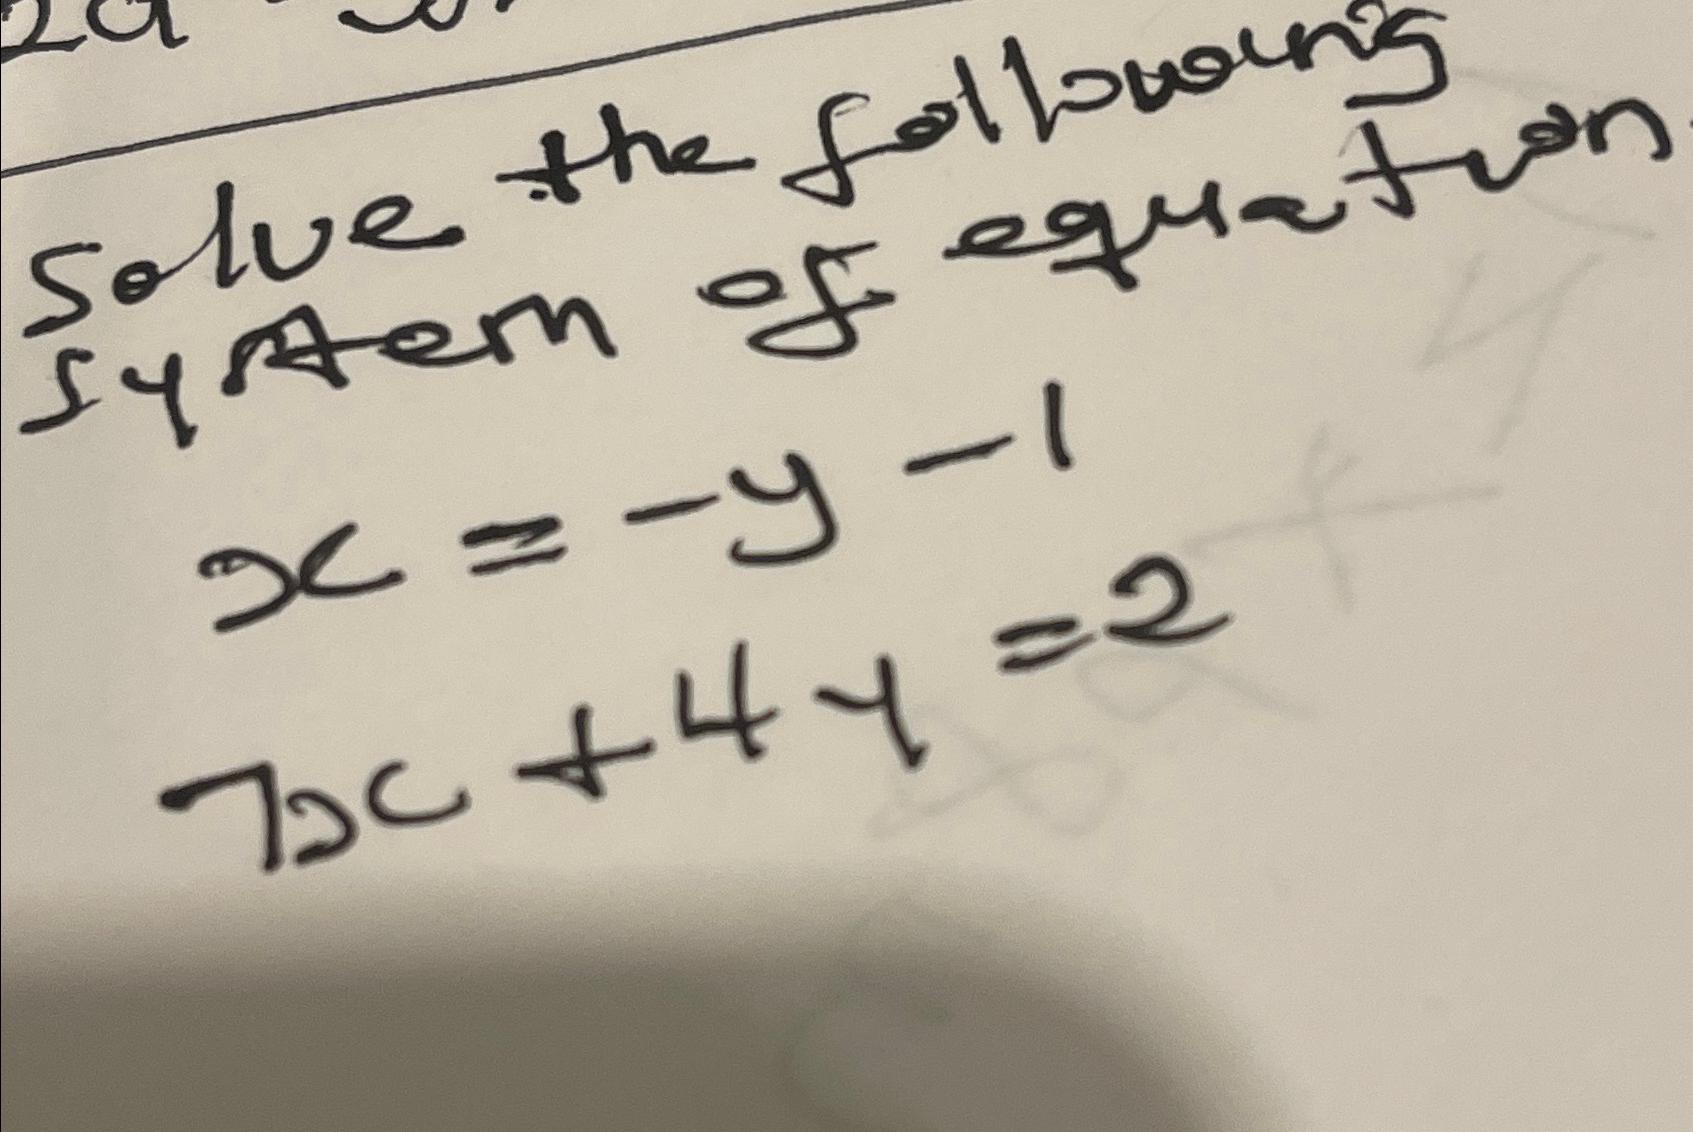 Solve the following
system of equation.
x = -y - 1
7x + 4y = 2